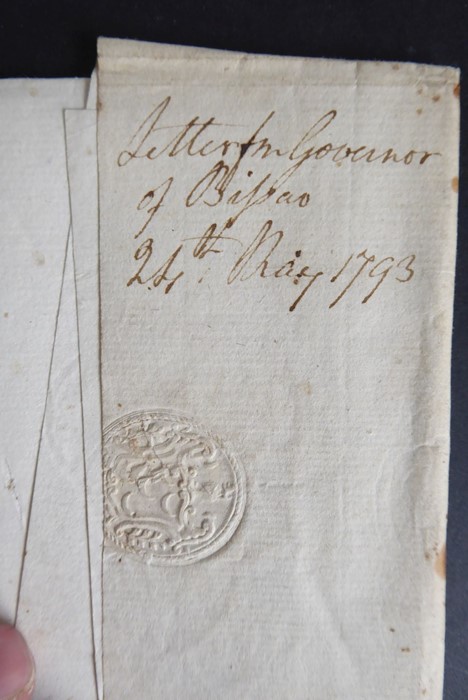 Letter fm Governor
of Bissao
24th May 1793